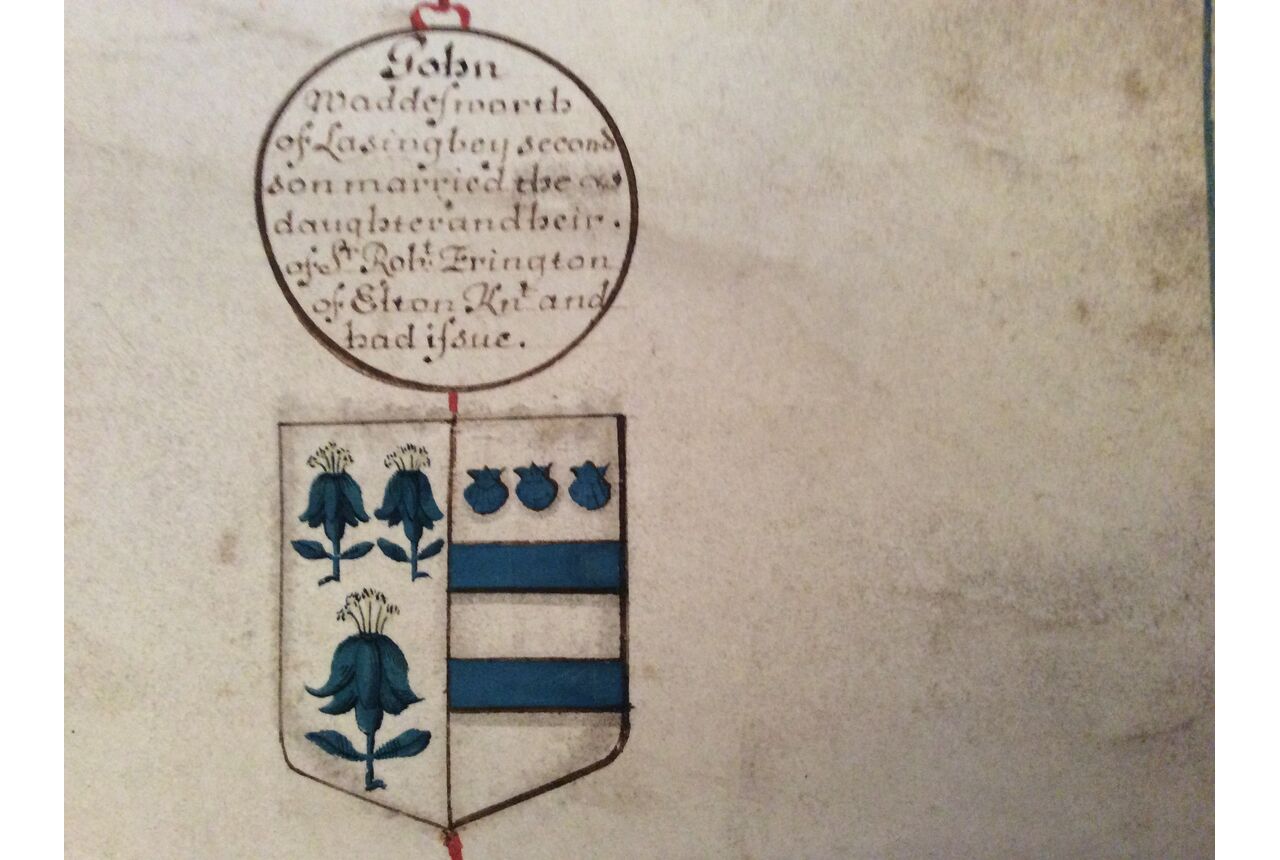 John
Waddesworth
of Lasingbey second
son married the
daughter and heir.
of Sr Robt. Erington
of Elton Knt and
had issue.